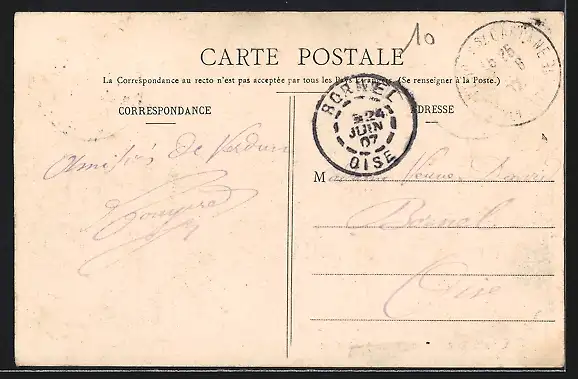 10
CARTE POSTALE
La Correspondance au recto n'est pas acceptée par tous les Pays Étrangers. (Se renseigner à la Poste.)
CORRESPONDANCE
ADRESSE
BORNEL
24
JUIN
07
OISE
Amitiés de Verdun
Madame Veuve
Bornel
Oise